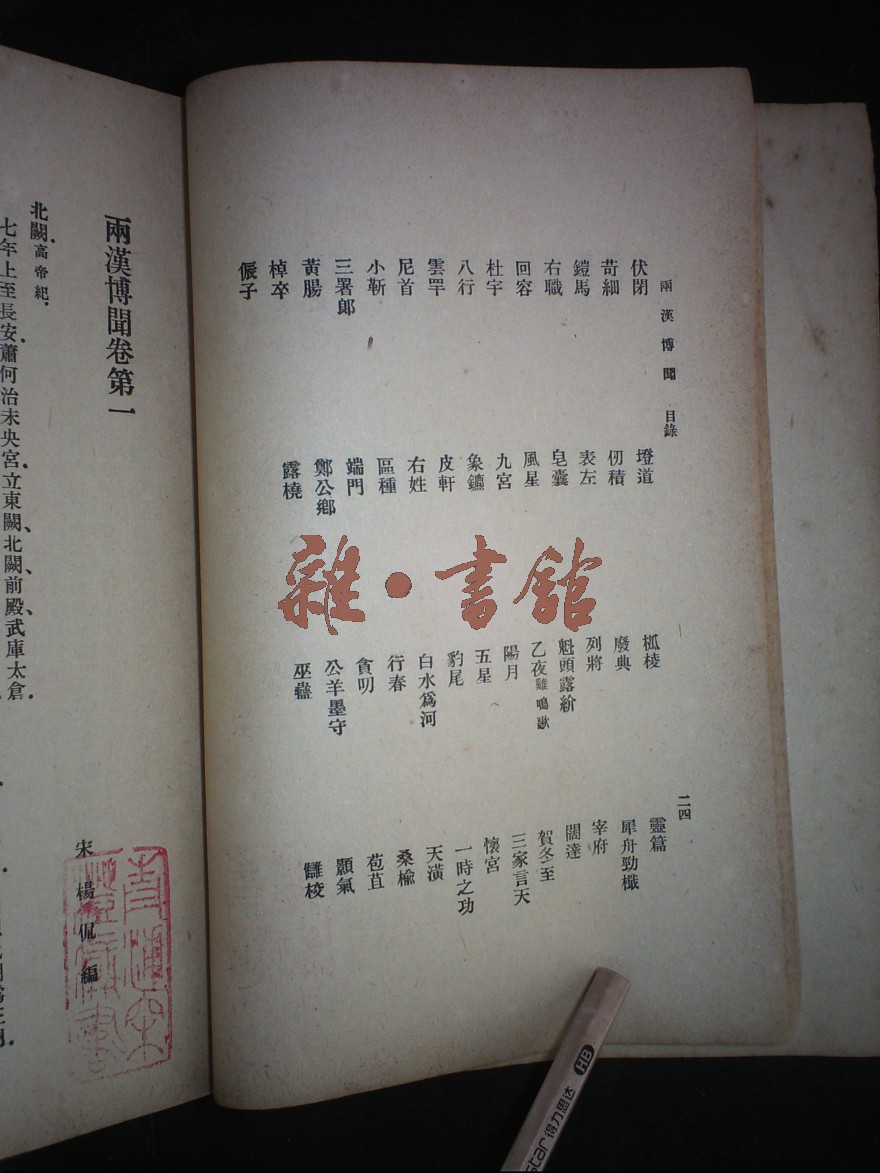 兩漢博聞 目錄 二四
伏閉 墱道 柧棱 靈篇
苛細 仞積 廢典 犀舟勁檝
鎧馬 表左 列將 宰府
右職 皂囊 魁頭露紒 闊達
回容 風星 乙夜雞鳴歌 賀冬至
杜宇 九宮 陽月 三家言天
八行 象鑣 五星 懷宮
雲罕 皮軒 豹尾 一時之功
尼首 右姓 白水爲河 天潢
小斬 區種 行春 桑楡
三署郎 端門 貪叨 苞苴
黃腸 鄭公鄉 公羊墨守 顥氣
棹卒 露橈 巫蠱 讎校
侲子
兩漢博聞卷第一
宋 楊侃編
北闕高帝紀.
七年上至長安.蕭何治未央宮.立東闕、北闕、前殿、武庫、太倉.
雜·書館
star得力思达 HB